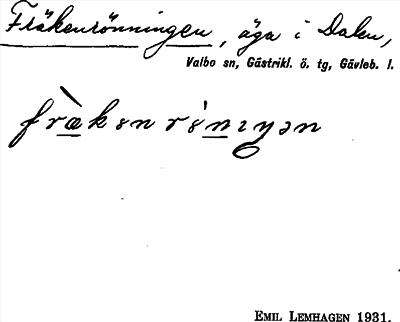 Fräkenrönningen, äga i Dalen,
Valbo sn, Gästrikl. ö. tg, Gävleb. l.
fræ̀kənrønıŋən
EMIL LEMHAGEN 1931.